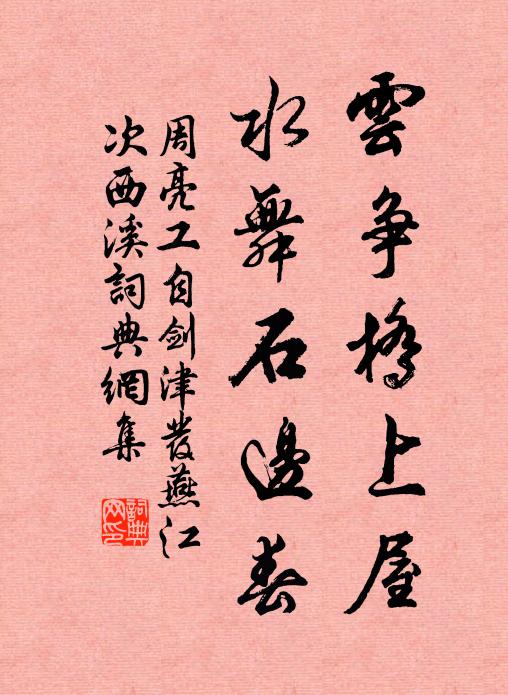 雲争橋上屋
水舞石邊春
周亮工自劍津發燕江
次西溪詞典網集
詞典
网印